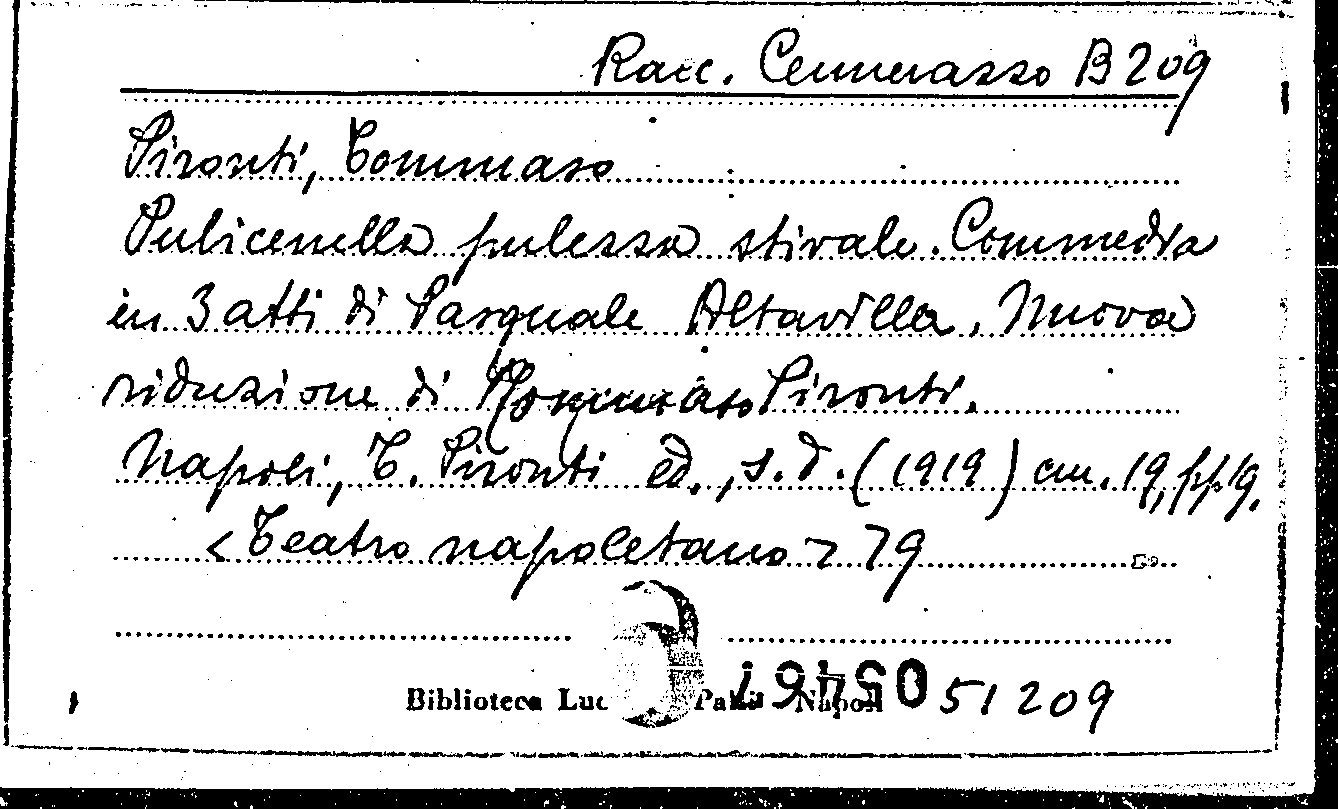 Racc. Cennerazzo B 209
Pironti, Tommaso
Pulicenella pulezza stivale. Commedia
in 3 atti di Pasquale Altavilla. Nuova
riduzione di Tommaso Pironti.
Napoli, T. Pironti ed., s.d. (1919) cm. 19, pp. 19.
<Teatro napoletano> 79
Biblioteca Luc Napoli
51209